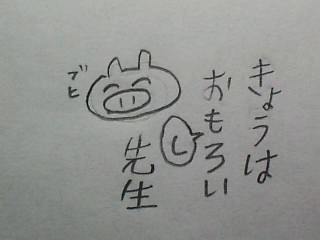 きょうは
おもろい
し
先生
ブヒ